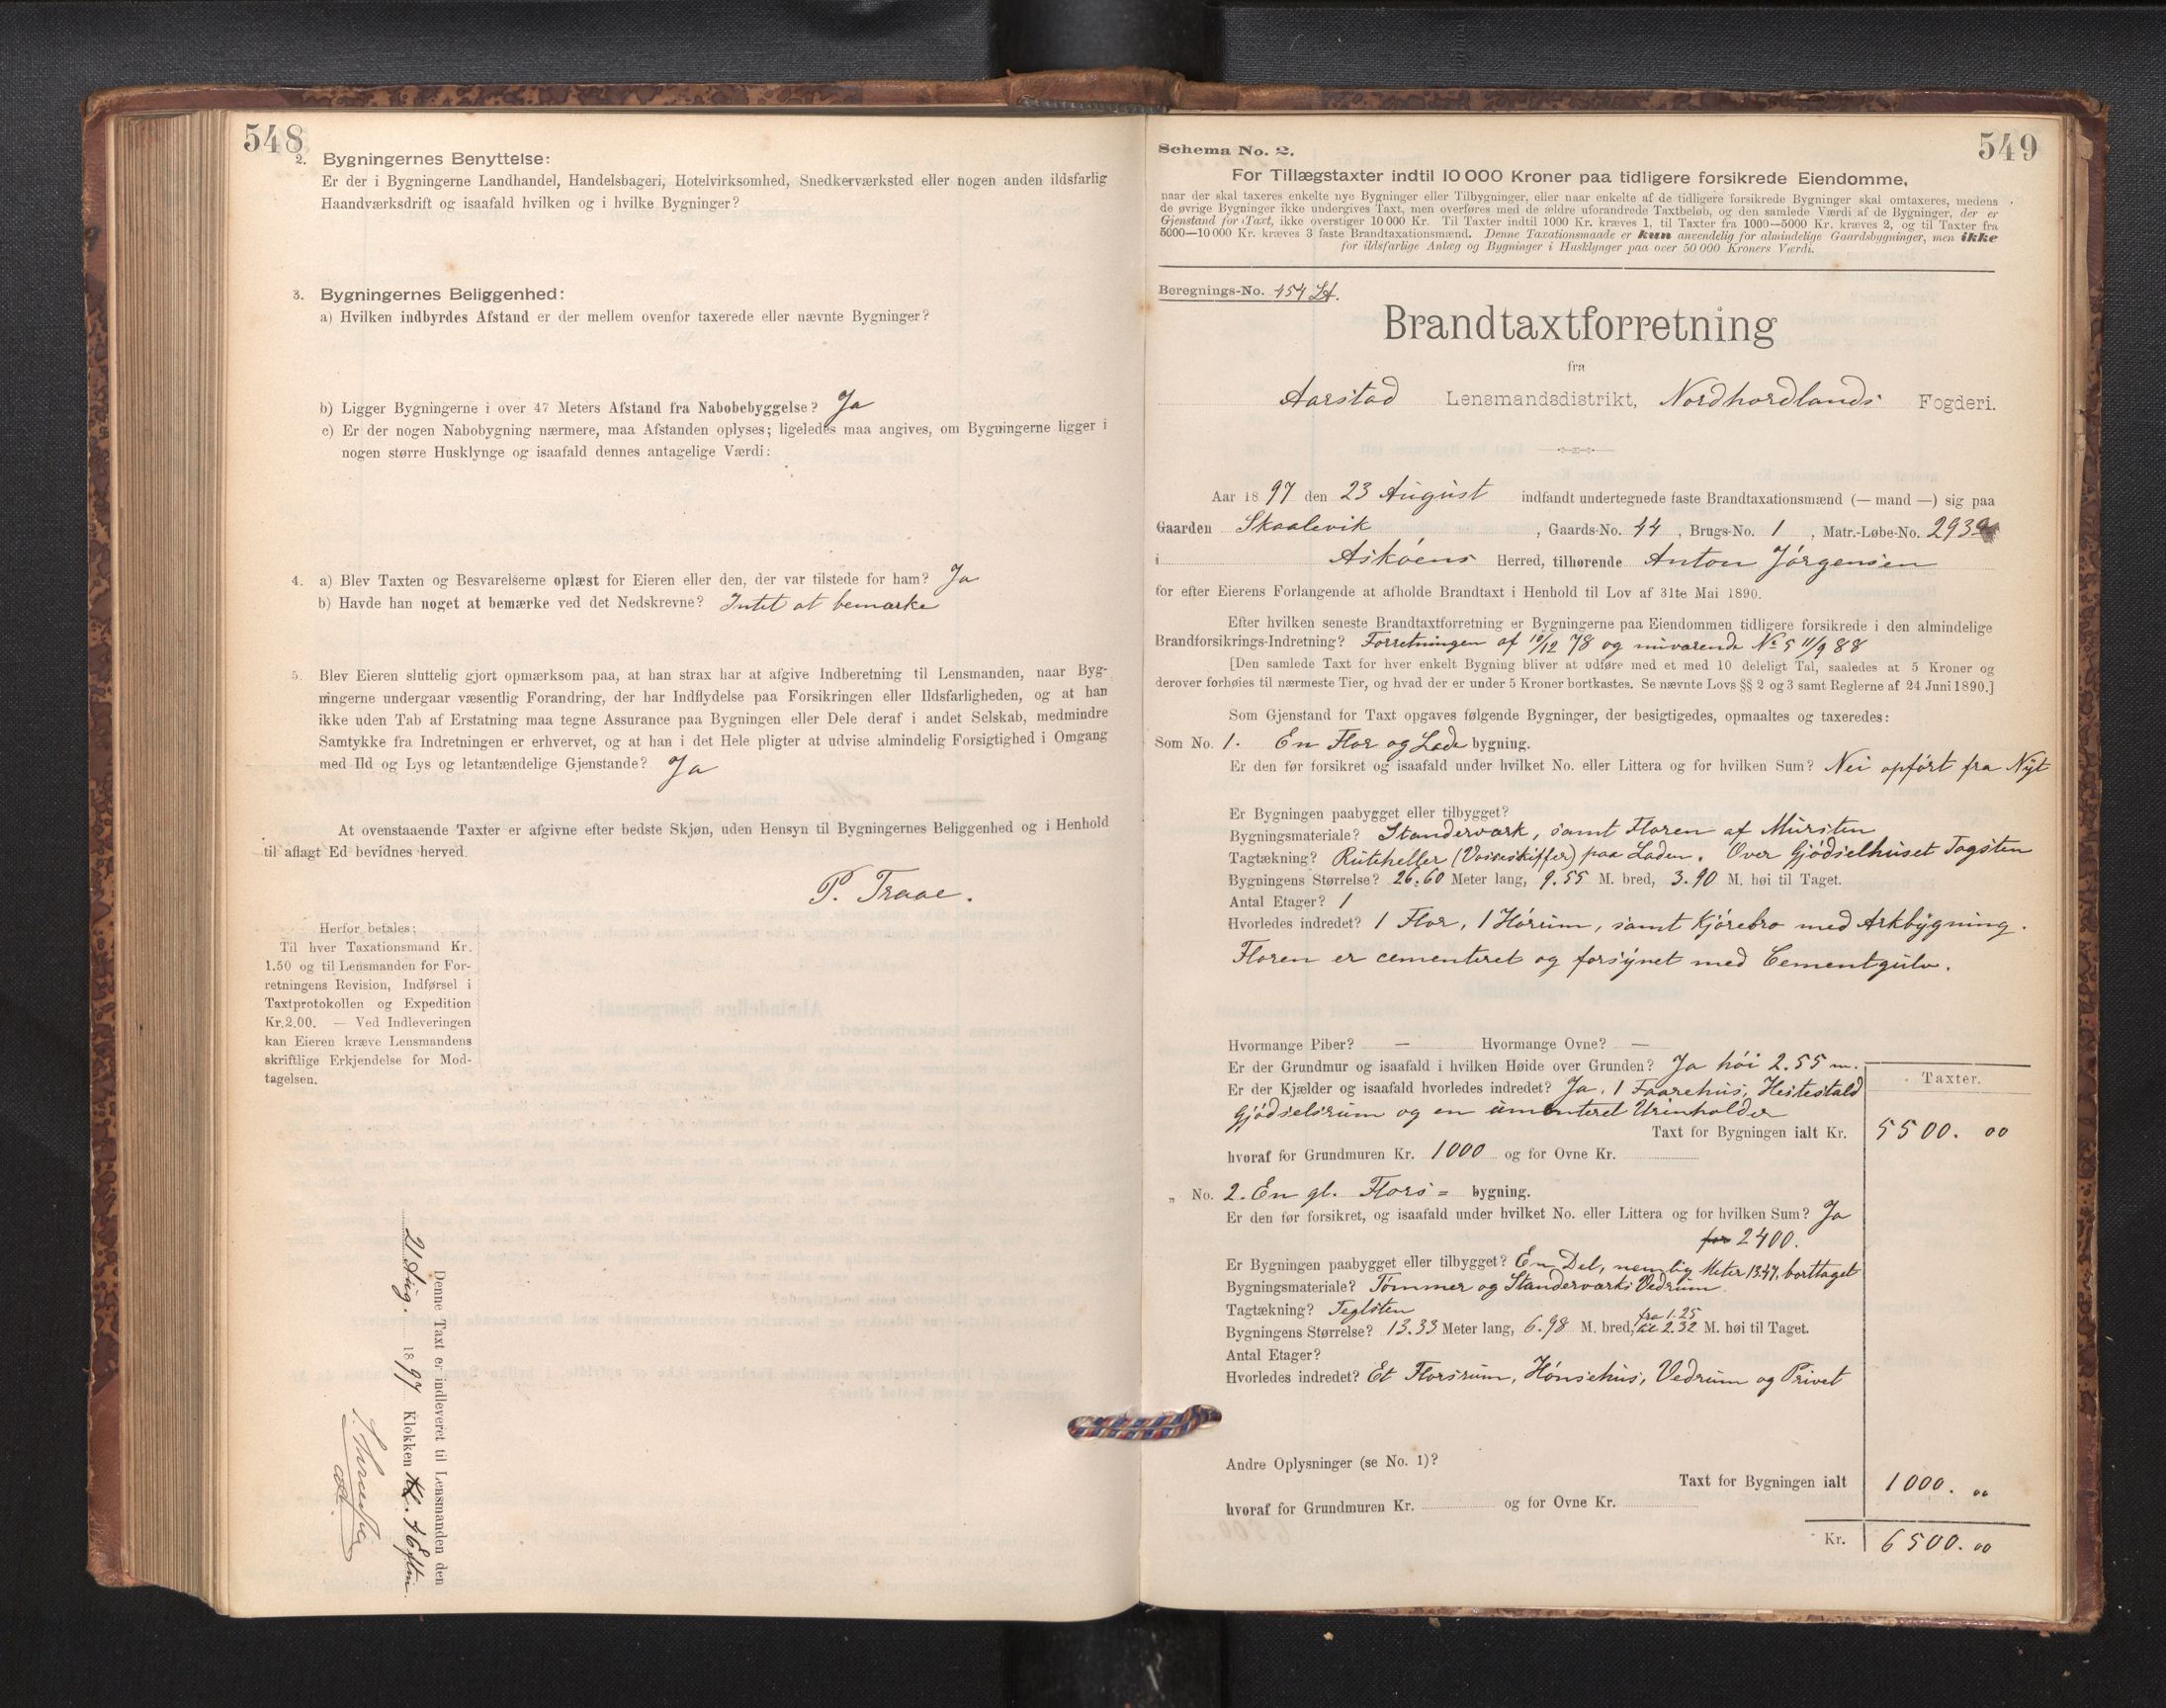 548
2. Bygningernes Benyttelse:
Er der i Bygningerne Landhandel, Handelsbageri, Hotelvirksomhed, Snedkerværksted eller nogen anden ildsfarlig
Haandværksdrift og isaafald hvilken og i hvilke Bygninger?
3. Bygningernes Beliggenhed:
a) Hvilken indbyrdes Afstand er der mellem ovenfor taxerede eller nævnte Bygninger?
b) Ligger Bygningerne i over 47 Meters Afstand fra Nabobebyggelse? Ja
c) Er der nogen Nabobygning nærmere, maa Afstanden oplyses; ligeledes maa angives, om Bygningerne ligger i
nogen større Husklynge og isaafald dennes antagelige Værdi:
4. a) Blev Taxten og Besvarelserne oplæst for Eieren eller den, der var tilstede for ham? Ja
b) Havde han noget at bemærke ved det Nedskrevne? Intet at bemærke
5. Blev Eieren sluttelig gjort opmærksom paa, at han strax har at afgive Indberetning til Lensmanden, naar Byg-
ningerne undergaar væsentlig Forandring, der har Indflydelse paa Forsikringen eller Ildsfarligheden, og at han
ikke uden Tab af Erstatning maa tegne Assurance paa Bygningen eller Dele deraf i andet Selskab, medmindre
Samtykke fra Indretningen er erhvervet, og at han i det Hele pligter at udvise almindelig Forsigtighed i Omgang
med Ild og Lys og letantændelige Gjenstande? Ja
At ovenstaaende Taxter er afgivne efter bedste Skjøn, uden Hensyn til Bygningernes Beliggenhed og i Henhold
til aflagt Ed bevidnes herved.
P. Traae.
Herfor betales:
Til hver Taxationsmand Kr.
1.50 og til Lensmanden for For-
retningens Revision, Indførsel i
Taxtprotokollen og Expedition
Kr. 2.00. — Ved Indleveringen
kan Eieren kræve Lensmandens
skriftlige Erkjendelse for Mod-
tagelsen.
Denne Taxt er indleveret til Lensmanden den
21 Aug. 1897 Klokken 4 Eftm.
549
Schema No. 2.
For Tillægstaxter indtil 10 000 Kroner paa tidligere forsikrede Eiendomme,
naar der skal taxeres enkelte nye Bygninger eller Tilbygninger, eller naar enkelte af de tidligere forsikrede Bygninger skal omtaxeres, medens
de øvrige Bygninger ikke undergives Taxt, men overføres med de ældre uforandrede Taxtbeløb, og den samlede Værdi af de Bygninger, der er
Gjenstand for Taxt, ikke overstiger 10 000 Kr. Til Taxter indtil 1000 Kr. kræves 1, til Taxter fra 1000—5000 Kr. kræves 2, og til Taxter fra
5000—10 000 Kr. kræves 3 faste Brandtaxationsmænd. Denne Taxationsmaade er kun anvendelig for almindelige Gaardsbygninger, men ikke
for ildsfarlige Anlæg og Bygninger i Husklynger paa over 50 000 Kroners Værdi.
Beregnings-No. 454
Brandtaxtforretning
fra
Aarstad Lensmandsdistrikt, Nordhordlands Fogderi.
Aar 1897 den 23 August indfandt undertegnede faste Brandtaxationsmænd (— mand —) sig paa
Gaarden Skaalevik, Gaards-No. 44, Brugs-No. 1, Matr.-Løbe-No. 293
i Askøens Herred, tilhørende Anton Jørgensen
for efter Eierens Forlangende at afholde Brandtaxt i Henhold til Lov af 31te Mai 1890.
Efter hvilken seneste Brandtaxtforretning er Bygningerne paa Eiendommen tidligere forsikrede i den almindelige
Brandforsikrings-Indretning? Forretningen af 10/12 78 og nuværende No 5 11/9 88
[Den samlede Taxt for hver enkelt Bygning bliver at udføre med et med 10 deleligt Tal, saaledes at 5 Kroner og
derover forhøies til nærmeste Tier, og hvad der er under 5 Kroner bortkastes. Se nævnte Lovs §§ 2 og 3 samt Reglerne af 24 Juni 1890.]
Som Gjenstand for Taxt opgaves følgende Bygninger, der besigtigedes, opmaaltes og taxeredes:
Som No. 1. En Flor og Lade bygning.
Er den før forsikret og isaafald under hvilket No. eller Littera og for hvilken Sum? Nei opført fra Nyt
Er Bygningen paabygget eller tilbygget?
Bygningsmateriale? Standerværk, samt Floren af Mursten
Tagtækning? Ruteheller (Vosseskiffer) paa Laden. Over Gjødselhuset Tagsten
Bygningens Størrelse? 26.60 Meter lang, 9.55 M. bred, 3.90 M. høi til Taget.
Antal Etager? 1
Hvorledes indredet? 1 Flor, 1 Hørum, samt Kjørebro med Arkbygning.
Floren er cementeret og forsynet med Cementgulv.
Hvormange Piber? — Hvormange Ovne? —
Er der Grundmur og isaafald i hvilken Høide over Grunden? Ja høi 2.55 m.
Er der Kjælder og isaafald hvorledes indredet? Ja, 1 Faarehus, Hestestald
Gjødselsrum og en umenteret Urinholder
Taxter.
Taxt for Bygningen ialt Kr. 5500. 00
hvoraf for Grundmuren Kr. 1000 og for Ovne Kr.
„ No. 2. En gl. Flors= bygning.
Er den før forsikret, og isaafald under hvilket No. eller Littera og for hvilken Sum? Ja
for 2400.
Er Bygningen paabygget eller tilbygget? En Del, nemlig Meter 13.47, borttaget
Bygningsmateriale? Tømmer og Standerværks Vedrum
Tagtækning? Teglsten
Bygningens Størrelse? 13.33 Meter lang, 6.98 M. bred, fra 1.25 til 2.32 M. høi til Taget.
Antal Etager?
Hvorledes indredet? Et Florsrum, Hønsehus, Vedrum og Privet
Andre Oplysninger (se No. 1)?
Taxt for Bygningen ialt 1000. 00
hvoraf for Grundmuren Kr. og for Ovne Kr.
Kr. 6500. 00